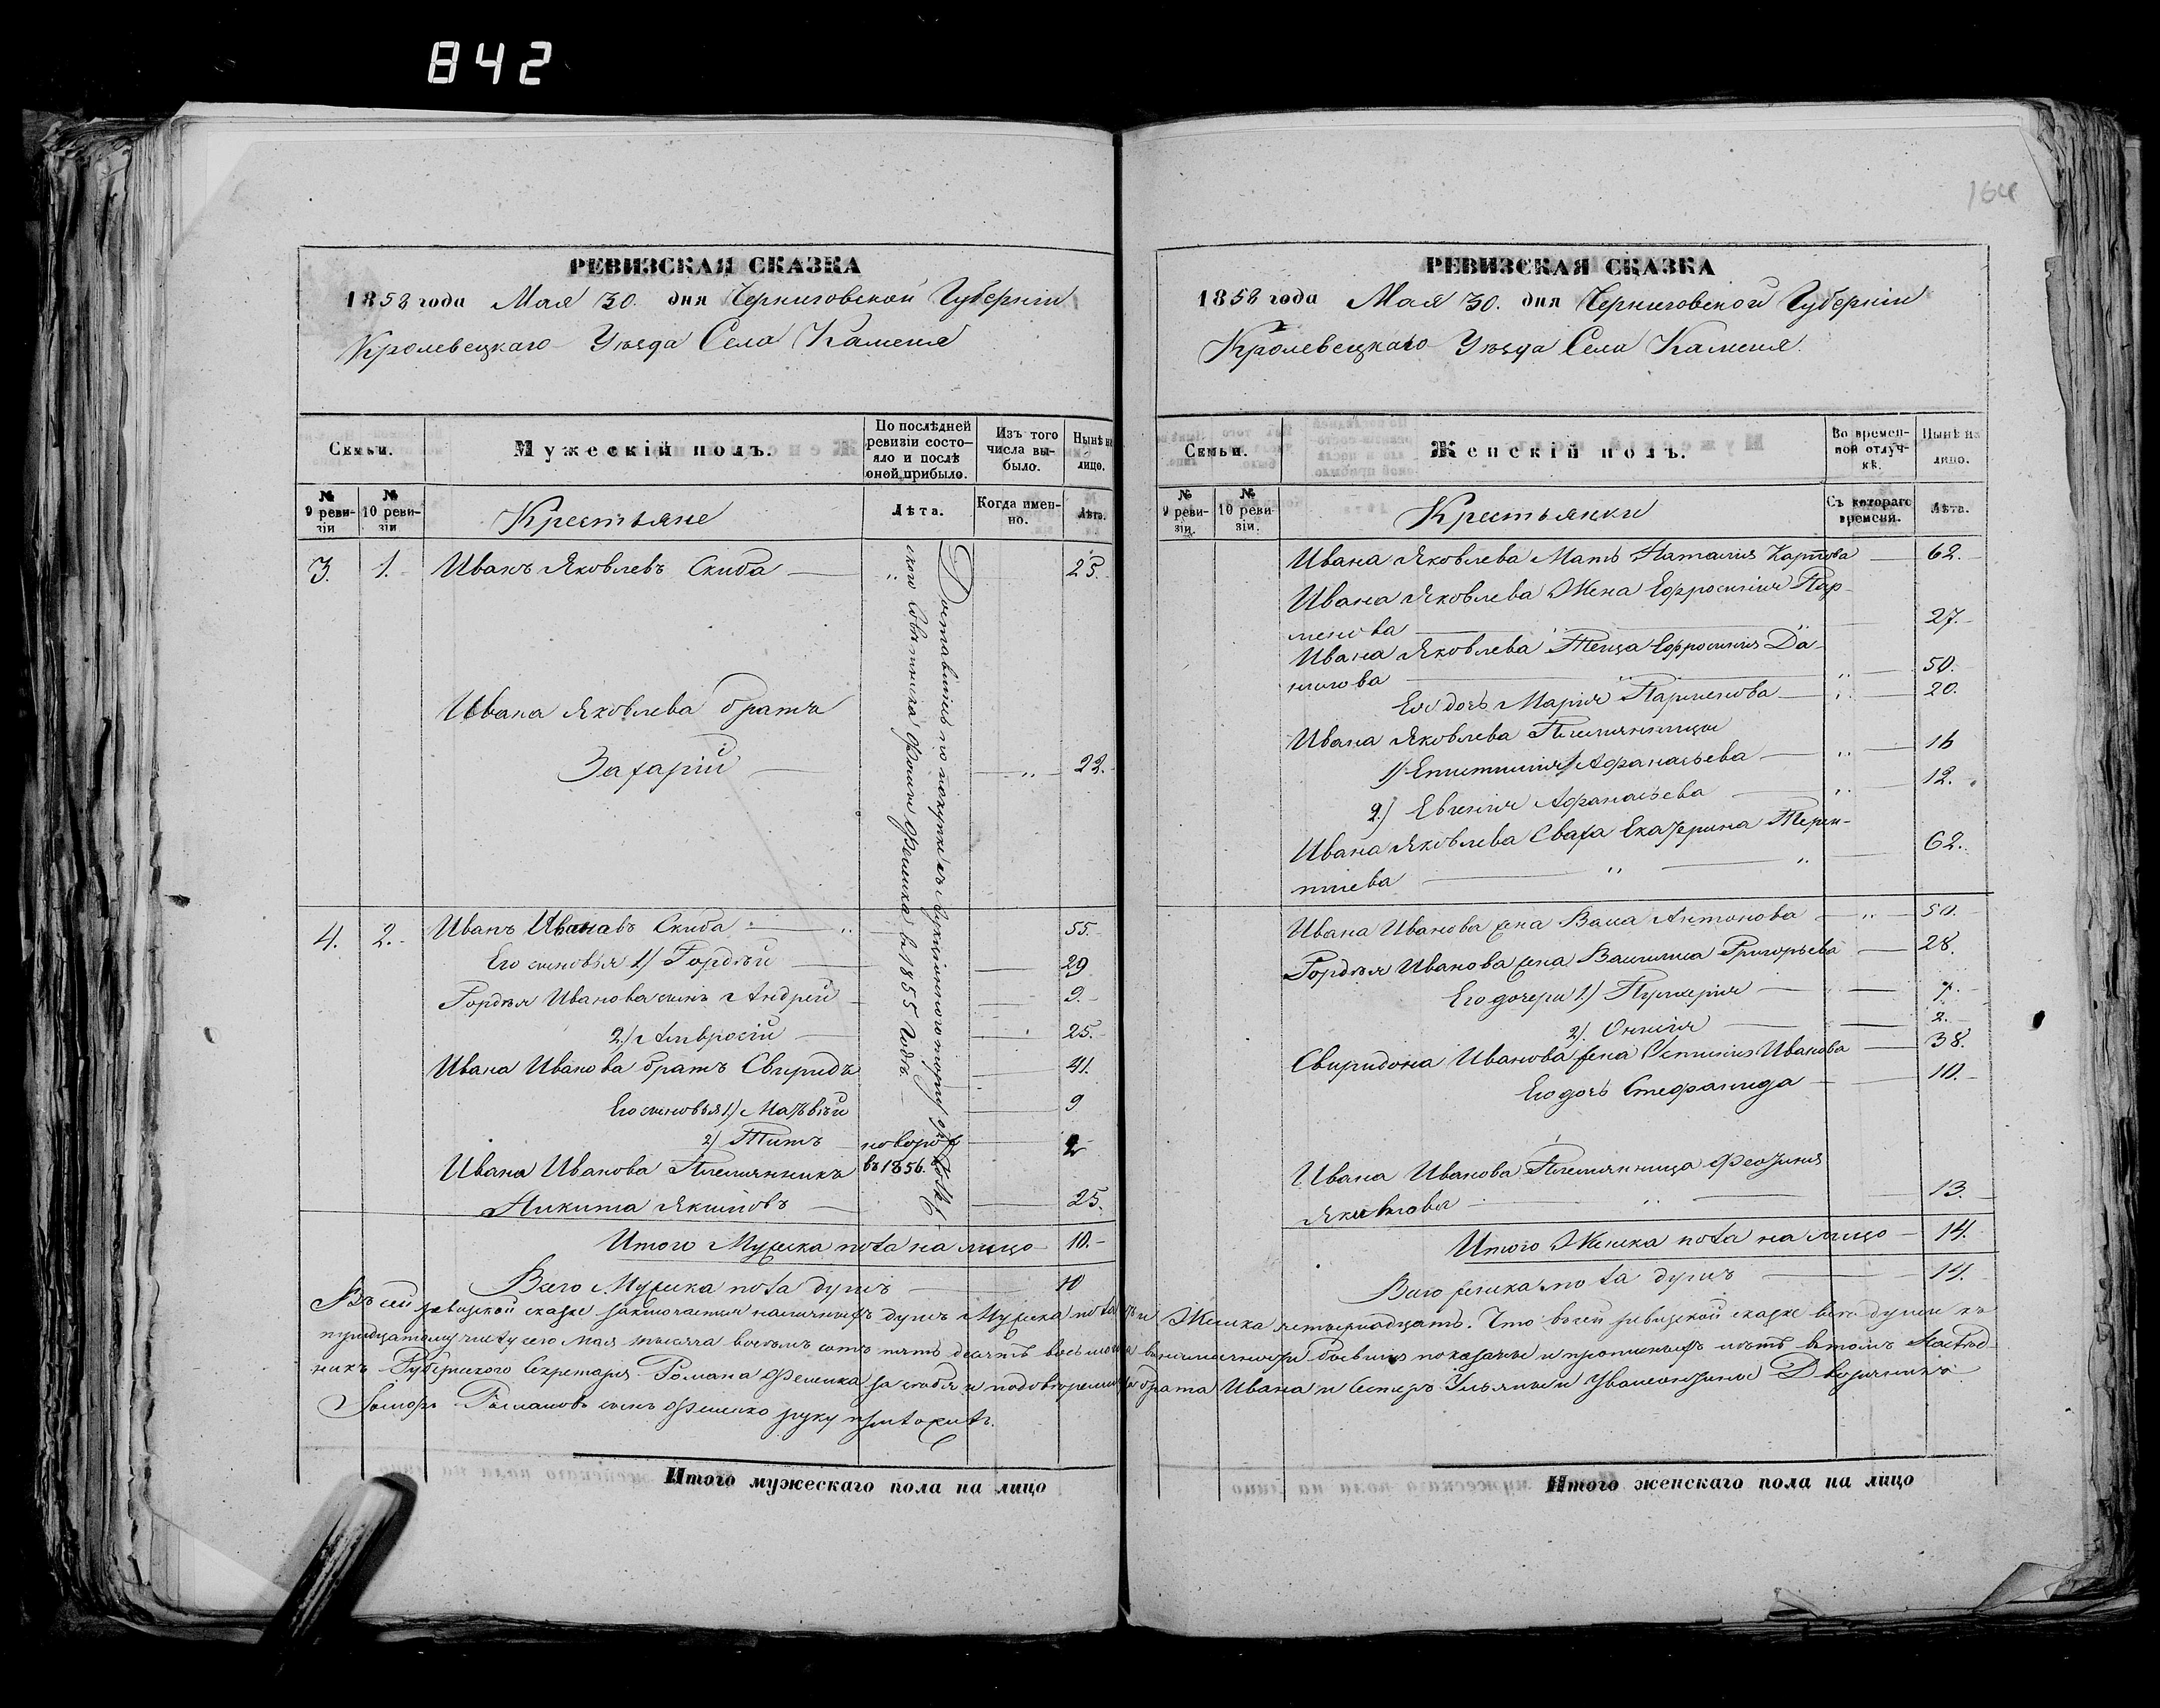 842
РЕВИЗСКАЯ СКАЗКА
1858 года Мая 30. дня Черниговской Губерніи
Кролевецкаго Уѣзда Села Каменя
Семьи.
Мужескій полъ.
По послѣдней ревизіи состояло и послѣ оной прибыло.
Изъ того числа выбыло.
Нынѣ на лицо.
№ 9 ревизіи
№ 10 ревизіи
Крестьяне
Лѣта.
Когда именно.
Лѣта.
3. 1. Иванъ Яковлевъ Скиба „ 25.
Ивана Яковлева братъ
Захарій „ 22.
Доставшіеся по покупкѣ
в 1855 Годѣ
4. 2. Иванъ Ивановъ Скиба „ 55.
Его сыновья 1) Гордѣй 29
Гордѣя Иванова сынъ Андрей 9.
2) Амвросій 25.
Ивана Иванова братъ Свиридъ 41.
Его сыновья 1) Матвѣй 9
2) Титъ новорож 2
Ивана Иванова Племянникъ въ 1856.
Никита Якимовъ 25.
Итого Мужска пола на лицо 10.
Всего Мужска пола душъ 10
РЕВИЗСКАЯ СКАЗКА
1858 года Мая 30. дня Черниговской Губерніи
Кролевецкаго Уѣзда Села Каменя.
Семьи.
Женскій полъ.
Во временной отлучкѣ.
Нынѣ на лицо.
№ 9 ревизіи.
№ 10 ревизіи.
Крестьянки
Съ котораго времени.
Лѣта.
Ивана Яковлева Мать Наталия Карпова 62.
Ивана Яковлева Жена Ефросинія Пар-
менова „ 27.
Ивана Яковлева Теща Ефросинія Да-
нилова „ 50.
Ея дочь Марія Парменова „ 20.
Ивана Яковлева Племянницы
1) Епистимія Афанасьева „ 16
2.) Евгенія Афанасьева „ 12.
Ивана Яковлева Сваха Екатерина Терен-
тиева „ „ 62.
Ивана Иванова жена Васса Антонова „ 50.
Гордѣя Иванова жена Василиса Григорьева 28.
Его дочери 1.) Пулхерія 7.
2.) 2.
Свиридона Иванова жена Иванова 38.
Его дочь Стефанида 10.
Ивана Иванова Племянница
Якимова „ 13.
Итого Женска пола на лицо 14.
Всего женска пола душъ 14.
Въ сей ревизской сказке заключается наличныхъ душъ Мужска пола и Женска четырнадцать. Что въ сей ревизской сказке всѣ души къ
тридцатому числу сего Мая тысяча восемь сотъ пять десятъ восьмого показаны и прописныхъ нѣтъ въ томъ
Губернского Секретаря Романа Фесенка за себя и брата Ивана и Сестеръ
Романовъ сынъ Фесенко руку приложилъ.
Итого мужескаго пола на лицо
Итого женскаго пола на лицо